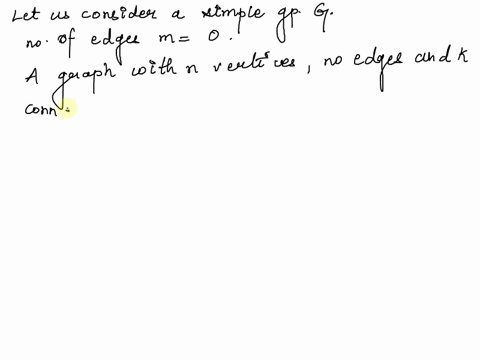 Let us consider a simple gp. G.
no. of edges m = 0.
A graph with n vertices, no edges and k
conn